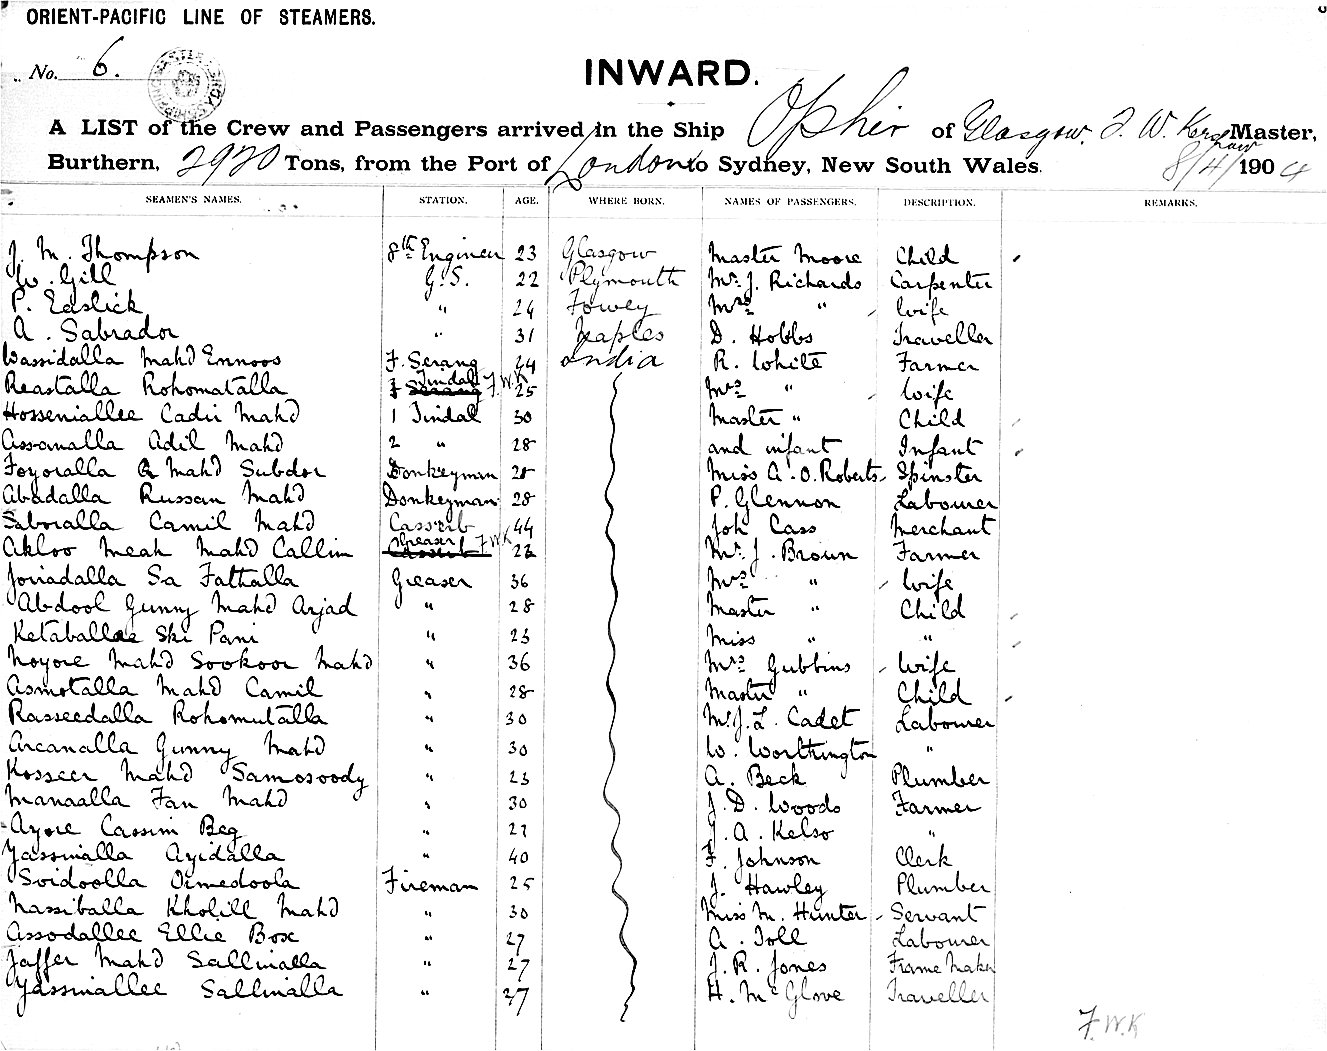 ORIENT-PACIFIC LINE OF STEAMERS.
No. 6.
INWARD.
A LIST of the Crew and Passengers arrived in the Ship Ophir of Glasgow, F. W. Kershaw Master,
Burthern, 2920 Tons, from the Port of London to Sydney, New South Wales. 8/4/1904
SEAMEN'S NAMES. STATION. AGE. WHERE BORN. NAMES OF PASSENGERS. DESCRIPTION. REMARKS.
J. M. Thompson 8th Engineer 23 Glasgow Master Moore Child
W. Gill G.S. 22 Plymouth Mr. J. Richards Carpenter
P. Easlick " 24 Fowey Mrs " Wife
A. Sabrador " 31 Naples D. Hobbs Traveller
Wassidalla Mahd Ennoos F. Serang 44 India R. White Farmer
Reastalla Rohomatalla Tindall F.W.K 25 Mrs " Wife
Hosseniallee Cadir Mahd 1 Tindal 30 Master " Child
Assanalla Adil Mahd 2 " 28 and infant Infant
Foyoralla Mahd Subdor Donkeyman 28 Miss A. O. Roberts Spinster
Abadalla Russan Mahd Donkeyman 28 P. Glennon Labourer
Saboralla Camil Mahd Cassab 44 Joh Cass Merchant
Akloo Meah Mahd Callim Greaser F.W.K 22 Mr. J. Brown Farmer
Joriadalla Sa Fathalla Greaser 36 Mrs " Wife
Abdool Gunny Mahd Arjad " 28 Master " Child
Ketaballae Ski Pani " 23 Miss " "
Noyore Mahd Sookoor Mahd " 36 Mrs Gubbins Wife
Asmotalla Mahd Camil " 28 Master " Child
Rasseedalla Rohomutalla " 30 Mr J. L. Cadet Labourer
Arcanalla Gunny Mahd " 30 W. Worthington "
Kosseer Mahd Samosoody " 23 A. Beck Plumber
Manaalla Fan Mahd " 30 J. D. Woods Farmer
Ayore Cassim Beg " 27 J. A. Kelso "
Yassinalla Ayidalla " 40 F. Johnson Clerk
Soidoolla Oimedoola Fireman 25 J. Hawley Plumber
Nassiballa Kholill Mahd " 30 Miss M. Hunter Servant
Assodallee Ellie Box " 27 A. Toll Labourer
Jaffer Mahd Sallinalla " 27 J. R. Jones Frame Maker
Yassinallee Sallinalla " 37 H. McGlove Traveller
F.W.K